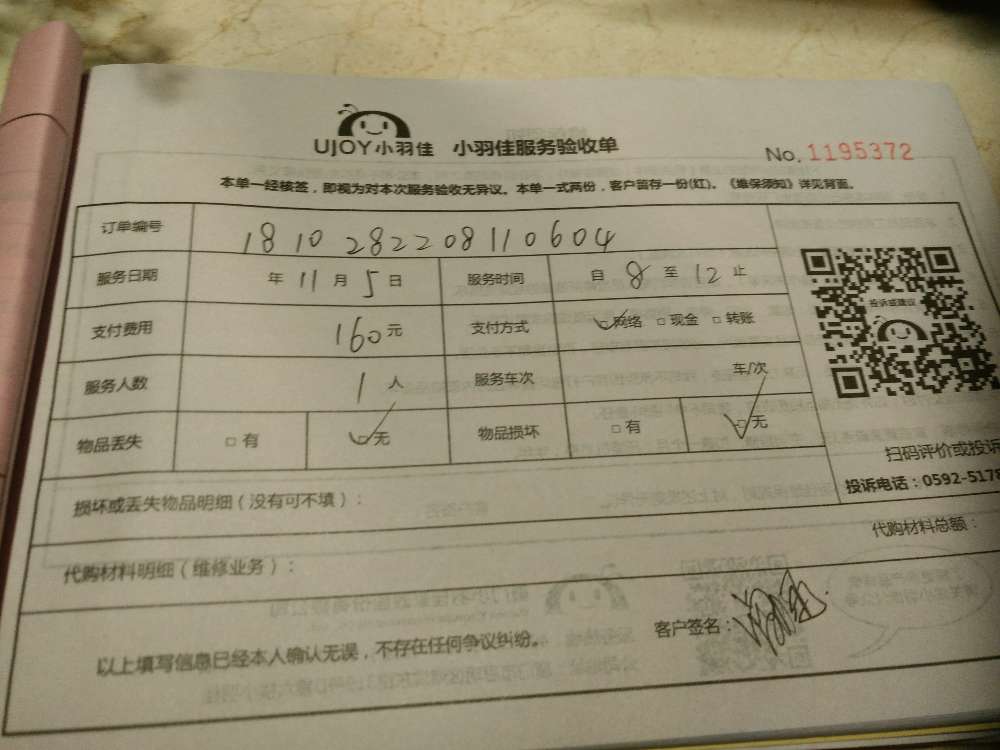 UJOY小羽佳 小羽佳服务验收单
No. 1195372
本单一经核签，即视为对本次服务验收无异议。本单一式两份，客户留存一份(红)。《维保须知》详见背面。
订单编号 18 10 282208110604
服务日期 年 11 月 5 日 服务时间 自 8 至 12 止
投诉或建议
支付费用 160 元 支付方式 ☑网络 □现金 □转账
服务人数 1 人 服务车次 车/次
物品丢失 □有 ☑无 物品损坏 □有 ☑无
扫码评价或投诉
损坏或丢失物品明细（没有可不填）：
投诉电话：0592-5178
代购材料明细（维修业务）：
代购材料总额：
以上填写信息已经本人确认无误，不存在任何争议纠纷。
客户签名：